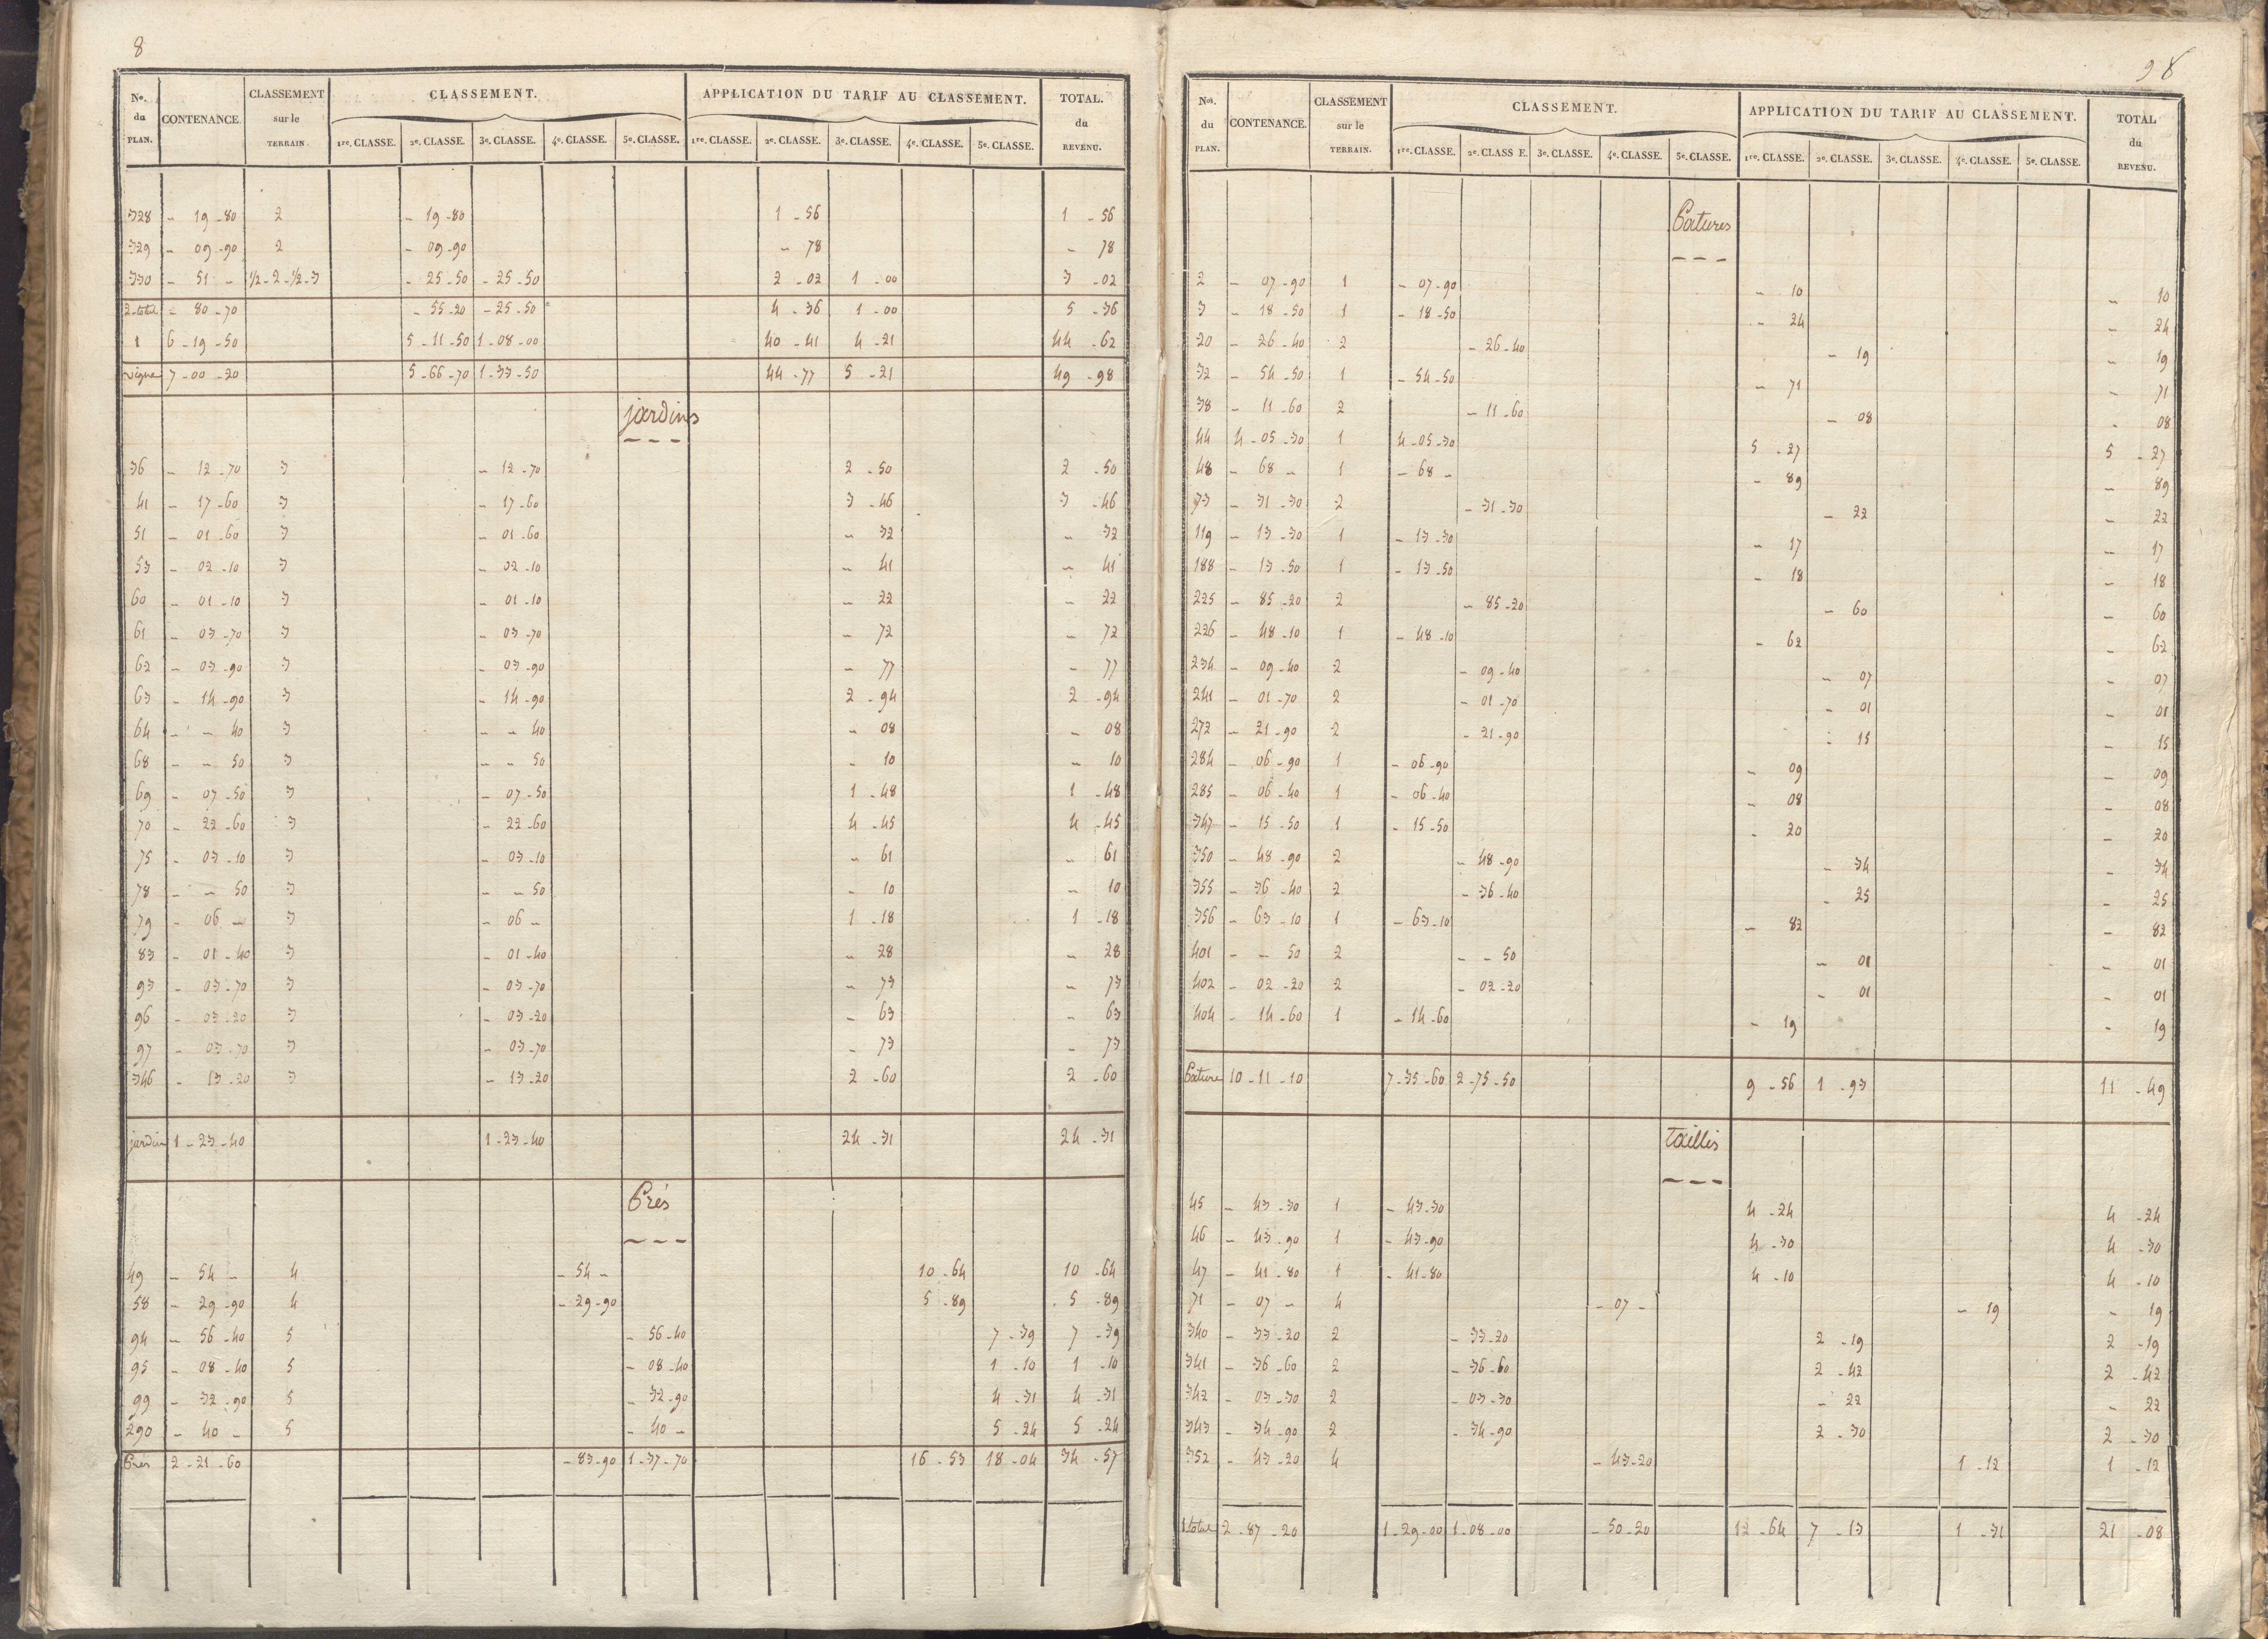 8
Nos. du PLAN. CONTENANCE. CLASSEMENT sur le TERRAIN. CLASSEMENT. APPLICATION DU TARIF AU CLASSEMENT. TOTAL. du REVENU.
1re. CLASSE. 2e. CLASSE. 3e. CLASSE. 4e. CLASSE. 5e. CLASSE. 1re. CLASSE. 2e. CLASSE. 3e. CLASSE. 4e. CLASSE. 5e. CLASSE.
328 - 19-80 2 - 19-80 1-56 1-56
329 - 09-90 2 - 09-90 - 78 - 78
330 - 51 - 1/2-2-1/2-3 - 25-50 - 25-50 2-02 1-00 3-02
2-total - 80-70 - 55-20 - 25-50 4-36 1-00 5-36
1 6-19-50 5-11-50 1-08-00 40-41 4-21 44-62
vigne 7-00-20 5-66-70 1-33-50 44-77 5-21 49-98
jardins
36 - 12-70 3 - 12-70 2-50 2-50
41 - 17-60 3 - 17-60 3-46 3-46
51 - 01-60 3 - 01-60 - 32 - 32
53 - 02-10 3 - 02-10 - 41 - 41
60 - 01-10 3 - 01-10 - 22 - 22
61 - 03-70 3 - 03-70 - 72 - 72
62 - 03-90 3 - 03-90 - 77 - 77
63 - 14-90 3 - 14-90 2-94 2-94
64 - - 40 3 - - 40 - 08 - 08
68 - - 50 3 - - 50 - 10 - 10
69 - 07-50 3 - 07-50 1-48 1-48
70 - 22-60 3 - 22-60 4-45 4-45
75 - 03-10 3 - 03-10 - 61 - 61
78 - - 50 3 - - 50 - 10 - 10
79 - 06 - 3 - 06 - 1-18 1-18
83 - 01-40 3 - 01-40 - 28 - 28
93 - 03-70 3 - 03-70 - 73 - 73
96 - 03-20 3 - 03-20 - 63 - 63
97 - 03-70 3 - 03-70 - 73 - 73
346 - 13-20 3 - 13-20 2-60 2-60
jardin 1-23-40 1-23-40 24-31 24-31
Prés
49 - 54 - 4 - 54 - 10-64 10-64
58 - 29-90 4 - 29-90 5-89 5-89
94 - 56-40 5 - 56-40 7-39 7-39
95 - 08-40 5 - 08-40 1-10 1-10
99 - 32-90 5 - 32-90 4-31 4-31
290 - 40 - 5 - 40 - 5-24 5-24
Prés 2-21-60 - 83-90 1-37-70 16-53 18-04 34-57
98
Nos. du PLAN. CONTENANCE. CLASSEMENT sur le TERRAIN. CLASSEMENT. APPLICATION DU TARIF AU CLASSEMENT. TOTAL du REVENU.
1re. CLASSE. 2e. CLASS E. 3e. CLASSE. 4e. CLASSE. 5e. CLASSE. 1re. CLASSE. 2e. CLASSE. 3e. CLASSE. 4e. CLASSE. 5e. CLASSE.
Patures
2 - 07-90 1 - 07-90 - 10 - 10
3 - 18-50 1 - 18-50 - 24 - 24
20 - 26-40 2 - 26-40 - 19 - 19
32 - 54-50 1 - 54-50 - 71 - 71
38 - 11-60 2 - 11-60 - 08 - 08
44 4-05-30 1 4-05-30 5-27 5-27
48 - 68 - 1 - 68 - - 89 - 89
73 - 31-30 2 - 31-30 - 22 - 22
119 - 13-30 1 - 13-30 - 17 - 17
188 - 13-50 1 - 13-50 - 18 - 18
225 - 85-20 2 - 85-20 - 60 - 60
226 - 48-10 1 - 48-10 - 62 - 62
234 - 09-40 2 - 09-40 - 07 - 07
241 - 01-70 2 - 01-70 - 01 - 01
272 - 21-90 2 - 21-90 - 15 - 15
284 - 06-90 1 - 06-90 - 09 - 09
285 - 06-40 1 - 06-40 - 08 - 08
347 - 15-50 1 - 15-50 - 20 - 20
350 - 48-90 2 - 48-90 - 34 - 34
355 - 36-40 2 - 36-40 - 25 - 25
356 - 63-10 1 - 63-10 - 82 - 82
401 - - 50 2 - - 50 - 01 - 01
402 - 02-20 2 - 02-20 - 01 - 01
404 - 14-60 1 - 14-60 - 19 - 19
Pature 10-11-10 7-35-60 2-75-50 9-56 1-93 11-49
taillis
45 - 43-30 1 - 43-30 4-24 4-24
46 - 43-90 1 - 43-90 4-30 4-30
47 - 41-80 1 - 41-80 4-10 4-10
71 - 07 - 4 - 07 - - 19 - 19
340 - 33-20 2 - 33-20 2-19 2-19
341 - 36-60 2 - 36-60 2-42 2-42
342 - 03-30 2 - 03-30 - 22 - 22
343 - 34-90 2 - 34-90 2-30 2-30
352 - 43-20 4 - 43-20 1-12 1-12
1 total 2-87-20 1-29-00 1-08-00 - 50-20 12-64 7-13 1-31 21-08